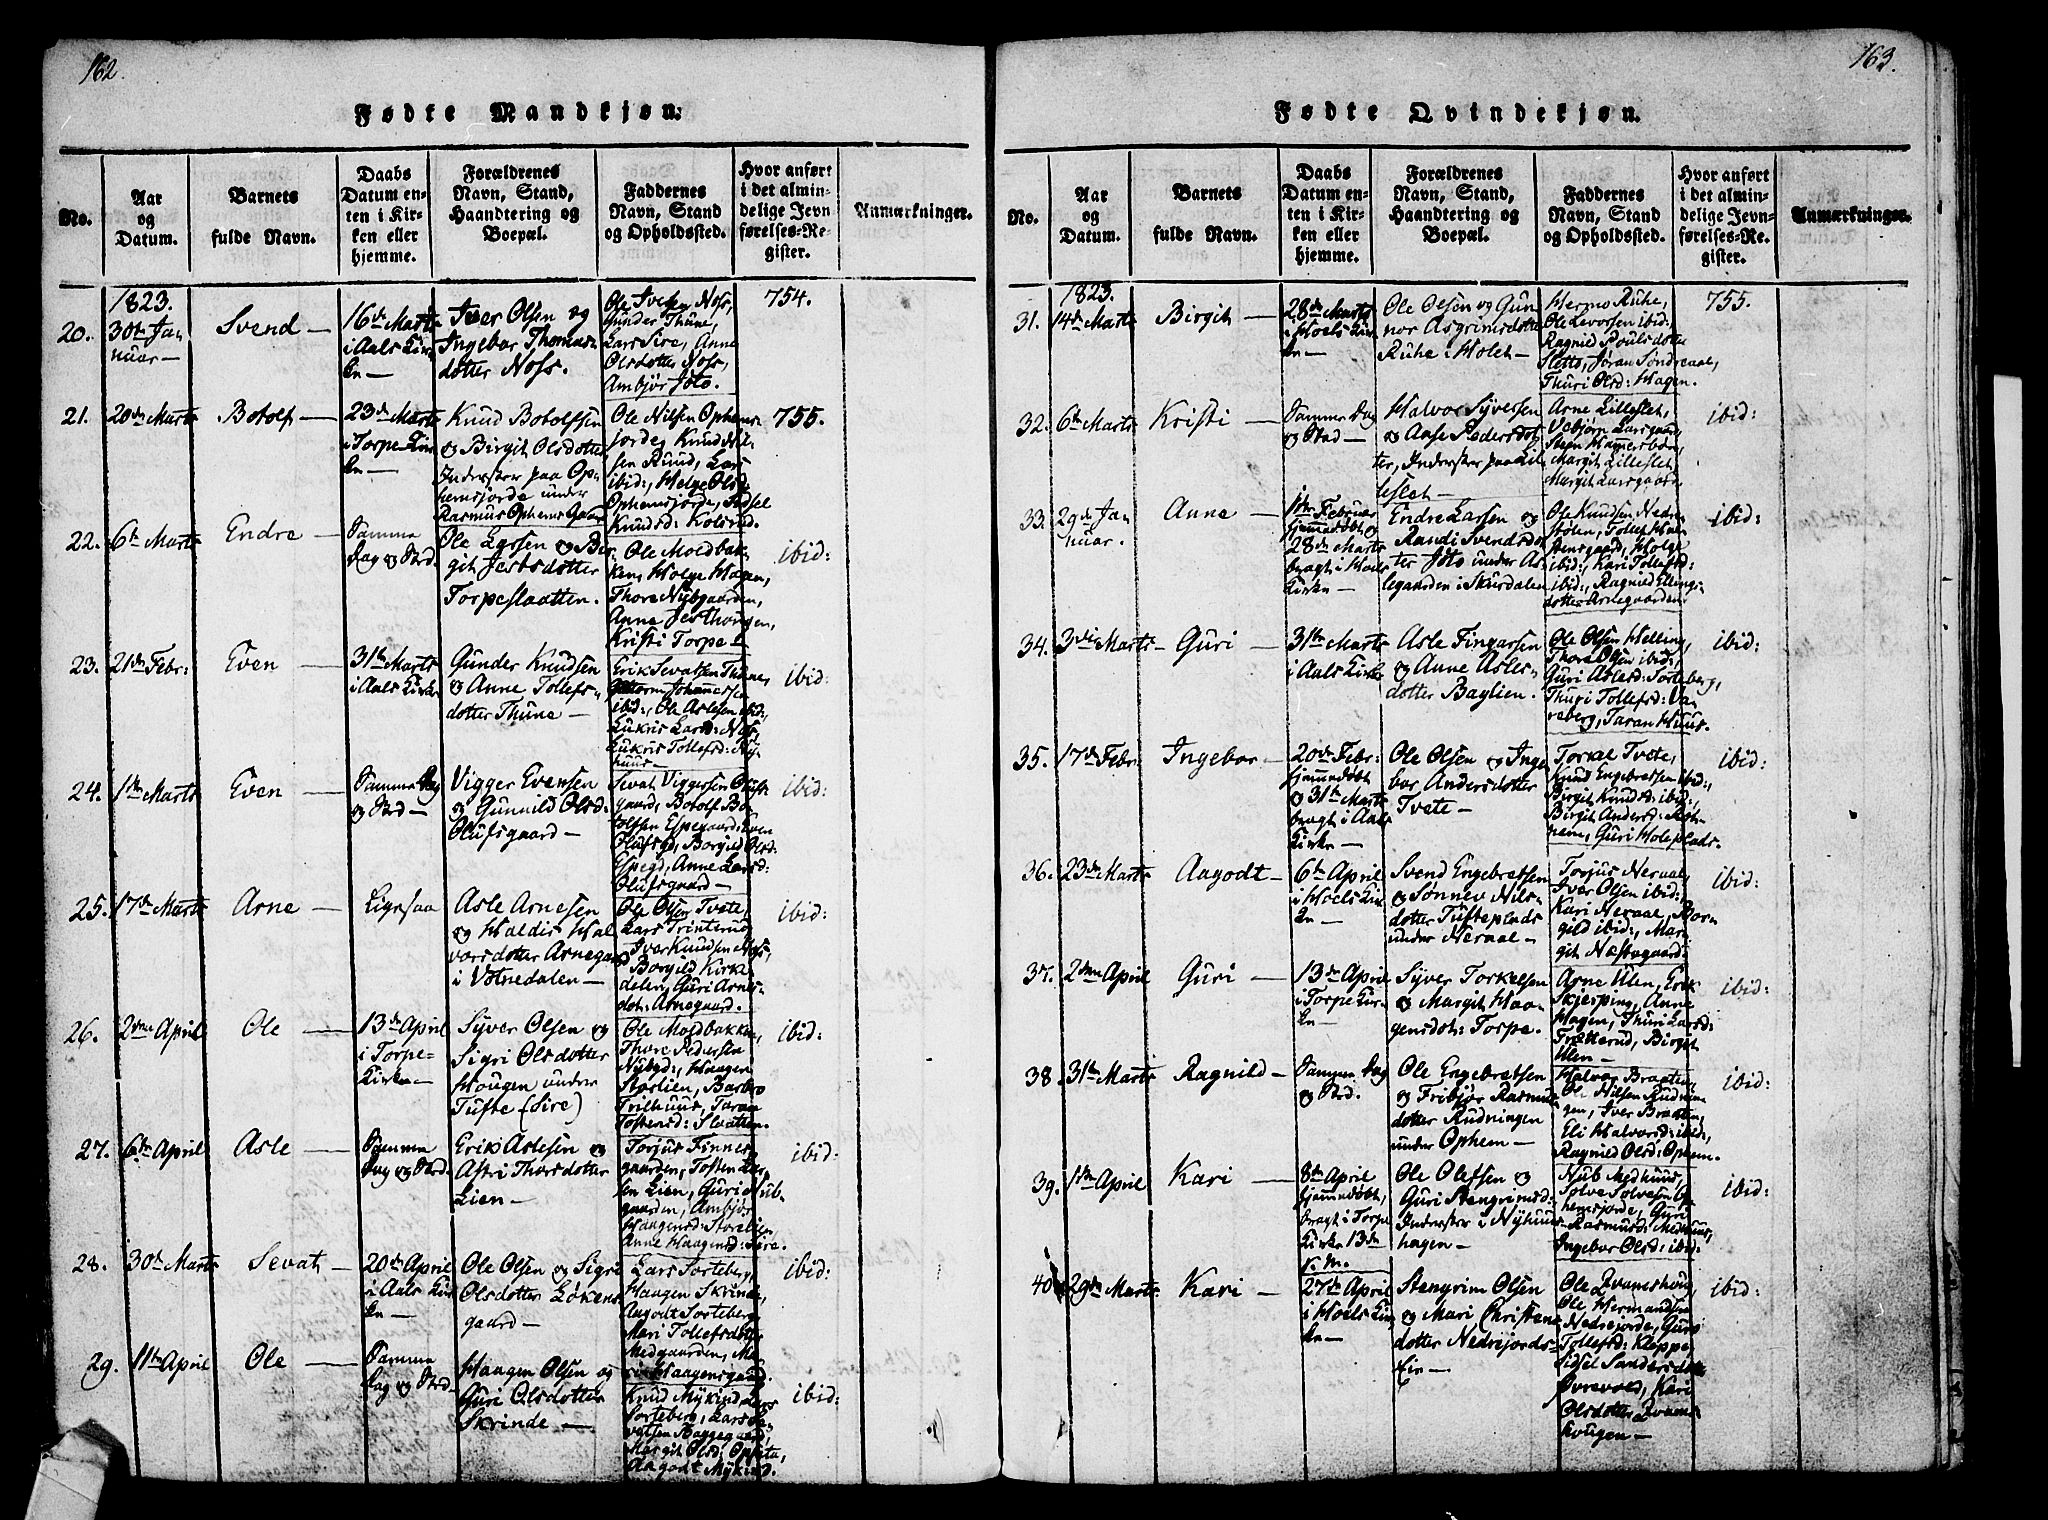 162.
Fødte Mandkjøn.
No.
Aar og Datum.
Barnets fulde Navn.
Daabs Datum enten i Kirken eller hjemme.
Forældrenes Navn, Stand, Haandtering og Boepæl.
Faddernes Navn, Stand og Opholdssted.
Hvor anført i det almindelige Jevnførelses-Register.
Anmærkninger.
1823.
20. 30te Januar — Svend —
16de Marts i Aals Kirke —
Iver Olsen og
Ingebor Thomasdotter Noss.
Gunder Thune,
Lars Sire, Anne
Olsdotter Noss,
Ambjør Joto.
754.
21. 20de Marts Botolf —
23de Marts i Torpe Kirke —
Knud Botolfsen
og Birgit Olsdotter
Inderster paa Ophemsjorde under
Rasmus Ophems Gaard
Ole Nilsen Ophemsjorde, Knud Nilsen Ruud, Lars
ibid:, Helge Olsd:
Ophemsjorde,
Knudsd: Kolsrud.
755.
22. 6te Marts Endre —
Samme Dag og Sted.
Ole Larsen og Birgit
Torpeslaatten.
Ole Moldbakken, Helge Hagen,
Thore Nybgaarden,
Anne
Kristi Torpe —
ibid:
23. 21de Febr: Even —
31te Marts i Aals Kirke
Gunder Knudsen
og Anne Tollefsdotter Thune —
Erik Sevatsen Thune,
Guttorm Johannessen
ibid:, Ole Aslesen ibid:,
Lukris Larsd: Noss,
Lukris Tollefsd: Nyhuus —
ibid:
24. 1te Marts Even —
Samme Dag og Sted —
Vigger Evensen
og Gunnild Olsd:
Olufsgaard —
Sevat Viggersen
Botolf Botolfsen Espegaard, Even
Olufsgd, Borgild Olsd:
Espegd, Anne Larsd:
Olufsgaard —
ibid:
25. 17de Marts Arne —
Ligesaa
Asle Arnesen
og Haldis Halvorsdotter Arnegaard
i Votnedalen —
Ole Olsen Tvete,
Lars Trinterud,
Iver Knudsen Noss,
Borgild Kirkedelen, Guri Arnesdot: Arnegaard.
ibid:
26. 2den April Ole —
13de April i Torpe Kirke —
Syver Olsen og
Sigri Olsdotter
Hougen under
Tufte (Sire)
Ole Moldbakken,
Thore Pedersen
Nubgd:, Haagen
Storlien, Barbro
Trilhuus, Taran
Tostensd: Slaatten.
ibid:
27. 6te April Asle —
Samme Dag og Sted.
Erik Aslesen og
Astri Thorsdotter
Lien —
Torjus Finnesgaarden, Tosten Larsen Lien, Guri Nubgaarden, Ambjør
Haagensd: Storelien,
Anne Haagensd: Sire.
ibid:
28. 30te Marts Sevat —
20de April i Aals Kirke —
Ole Olsen og Sigri
Olsdotter Løkensgaard —
Lars Sorteberg,
Haagen Skrinde,
Aagodt Sorteberg,
Mari Tollefsdotter
Medgaarden, Mari Haagensgaard.
ibid:
29. 11te April Ole —
Samme Dag og Sted —
Haagen Olsen og
Guri Olsdotter
Skrinde —
Knud Mykind, Lars
Sorteberg, Lars Sevatsen Haggegaard,
Margit Olsd: Opheta,
Aagodt Mykind.
ibid:
163.
Fødte Qvindekjøn.
No.
Aar og Datum.
Barnets fulde Navn.
Daabs Datum enten i Kirken eller hjemme.
Forældrenes Navn, Stand, Haandtering og Boepæl.
Faddernes Navn, Stand og Opholdssted.
Hvor anført i det almindelige Jevnførelses-Register.
Anmærkninger.
1823.
31. 14de Marts Birgit —
28de Marts i Hoels Kirke —
Ole Olsen og Gunnor Asgrimsdotter
Ruhe i Holet —
Hermo Ruhe,
Ole Levorsen ibid:
Ragnild Poulsdotter
Slette, Jøran Sondreaal,
Thuri Olsd: Hagen.
755.
32. 6te Marts Kristi —
Samme Dag og Sted —
Halvor Syversen
og Aase Pedersdotter, Inderster paa Lilleslet —
Arne Lilleslet,
Vebjørn Larsgaard,
Sten Hammersbøen,
Margit Lilleslet,
Margit Larsgaard.
ibid:
33. 29de Januar. Anne —
1te Februar hjemmedøbt og
28de Marts bragt i Hoels Kirke —
Endre Larsen og
Randi Svendsdotter Joto under Aslegaarden i Skurdalen
Ole Knudsen Nedrestølen, Tollef Halstensgaard, Helge
ibid:, Kari Tollefsd:
ibid:, Ragnild Ellingsdotter Arnegaarden
ibid:
34. 3die Marts — Guri —
31te Marts i Aals Kirke
Asle Fingarsen
og Anne Aslesdotter Baglien.
Ole Olsen Helling,
Thore Olsen ibid:
Guri Aslesd: Sorteberg,
Thuri Tollefsd: Vareberg, Taran Huus.
ibid:
35. 17de Febr: Ingebor —
20de Febr: hjemmedøbt
og 31te Marts bragt i Aals Kirke —
Ole Olsen og Ingebor Andersdotter
Tvete —
Torkal Tvete,
Knud Engebretsen ibid:,
Birgit Knudsd: ibid:,
Birgit Andersd: Rotneim, Guri Holeplads.
ibid:
36. 23de Marts Aagodt —
6te April i Hoels Kirke —
Svend Engebretsen
og Sønnev Nilsdotter Tufteplads
under Neraal —
Torjus Neraal,
Iver Olsen ibid:
Kari Neraal, Borgild ibid:, Margit Nestegaard:
ibid:
37. 2den April Guri —
13de April i Torpe Kirke —
Syver Torkelsen
og Margit Haagensdot: Torpe.
Arne Ulen, Erik
Skjerping, Anne
Hagen, Thuri Larsd:
Frøkerud, Birgit
Ulen —
ibid:
38. 31te Marts Ragnild —
Samme Dag og Sted.
Ole Engebretsen
og Fribjør Rasmusdotter Rudningen
under Ophem —
Halvor Braaten,
Ole Nilsen Rudningen, Iver Braaten,
Eli Halvorsd: ibid:,
Ragnild Olsd: Ophem.
ibid:
39. 1te April Kari —
8de April hjemmedøbt,
bragt i Torpe Kirke 13de s. M.
Ole Olefsen og
Guri Stengrimsd:
Inderster i Nyhuushagen —
Nub Medhuus,
Solve Solvesen Ophemsjorde, Guri
Rasmusd: Medhuus,
Ingebor Olsd: ibid:
ibid:
40. 29de Marts. Kari —
27de April i Hoels Kirke —
Stengrim Olsen
og Mari Christensdotter Nedrejords-
Eie —
Ole Qvameshoug,
Ole Hermandsen
Nedrejorde, Guri
Tollefsd: Kleppe,
Sidsel Sandersdotter
Øvrevold, Kari
Olsdotter Qvamehougen —
ibid: